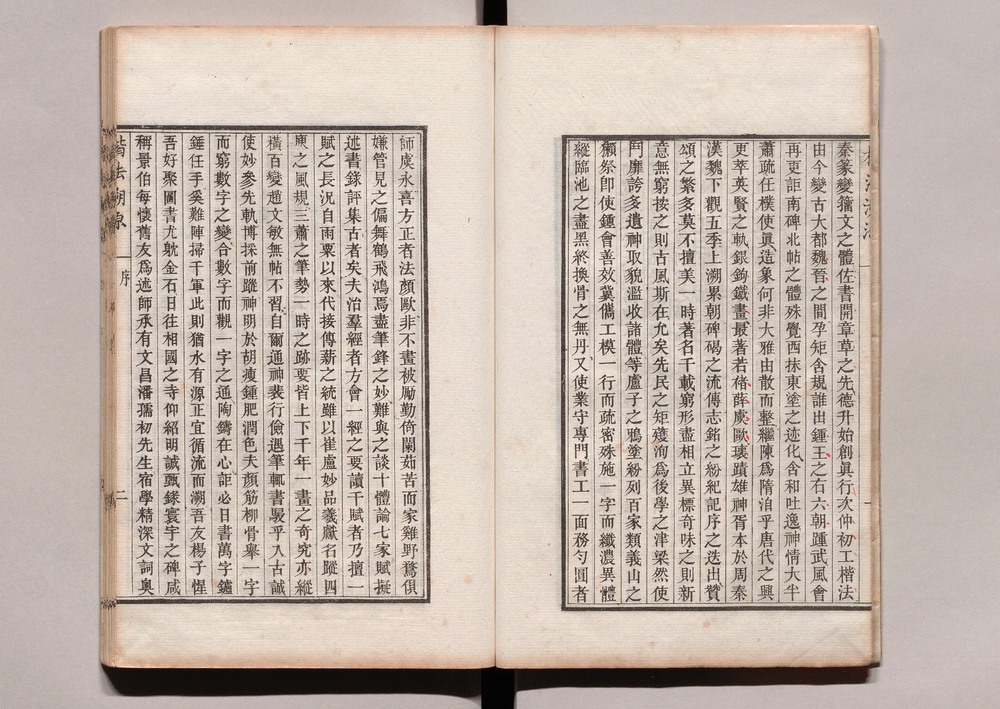 秦篆變籀文之體佐書開章草之先德升始創眞行次仲初工楷法
由今變古大都魏晉之間孕矩含規誰出鍾王之右六朝踵武風會
再更詎南碑北帖之體殊覺西抹東塗之迹化含和吐逸神情大半
蕭疏任樸使眞造象何非大雅由散而整繼陳爲隋洎乎唐代之興
更萃英賢之軌銀鉤鐵畫最著若褚薛虞歐瓌蹟雄神胥本於周秦
漢魏下觀五季上溯累朝碑碣之流傳志銘之紛紀記序之迭出贊
頌之繁多莫不擅美一時著名千載窮形盡相立異標奇味之則新
意無窮按之則古風斯在允矣先民之矩矱洵爲後學之津梁然使
鬥靡誇多遺神取貌濫收諸體等盧子之鴉塗紛列百家類義山之
獺祭卽使鍾會善效冀儁工模一行而疏密殊施一字而纖濃異體
縱臨池之盡黑終換骨之無丹又使業守專門書工一面務勻圓者
師虞永喜方正者法顏歐非不畫被勵勤倚闌茹苦而家雞野鶩俱
嫌管見之偏舞鶴飛鴻焉盡筆鋒之妙難與之談十體論七家賦擬
述書錄評集古者矣夫治羣經者方會一經之要讀千賦者乃擅一
賦之長況自雨粟以來代接傳薪之統雖以崔盧妙品羲獻名蹤四
庾之風規三蕭之筆勢一時之跡要皆上下千年一畫之奇究亦縱
橫百變趙文敏無帖不習自爾通神裴行儉遇筆輒書駸乎入古誠
使妙參先軌博採前蹤神明於胡瘦鍾肥潤色夫顏筋柳骨舉一字
而窮數字之變合數字而觀一字之通陶鑄在心詎必日書萬字鑪
錘任手奚難陣掃千軍此則猶水有源正宜循流而溯吾友楊子惺
吾好聚圖書尤躭金石日往相國之寺仰紹明誠甄錄寰宇之碑咸
稱景伯每懷舊友爲述師承有文昌潘孺初先生宿學精深文詞奧
楷法溯源 序 二